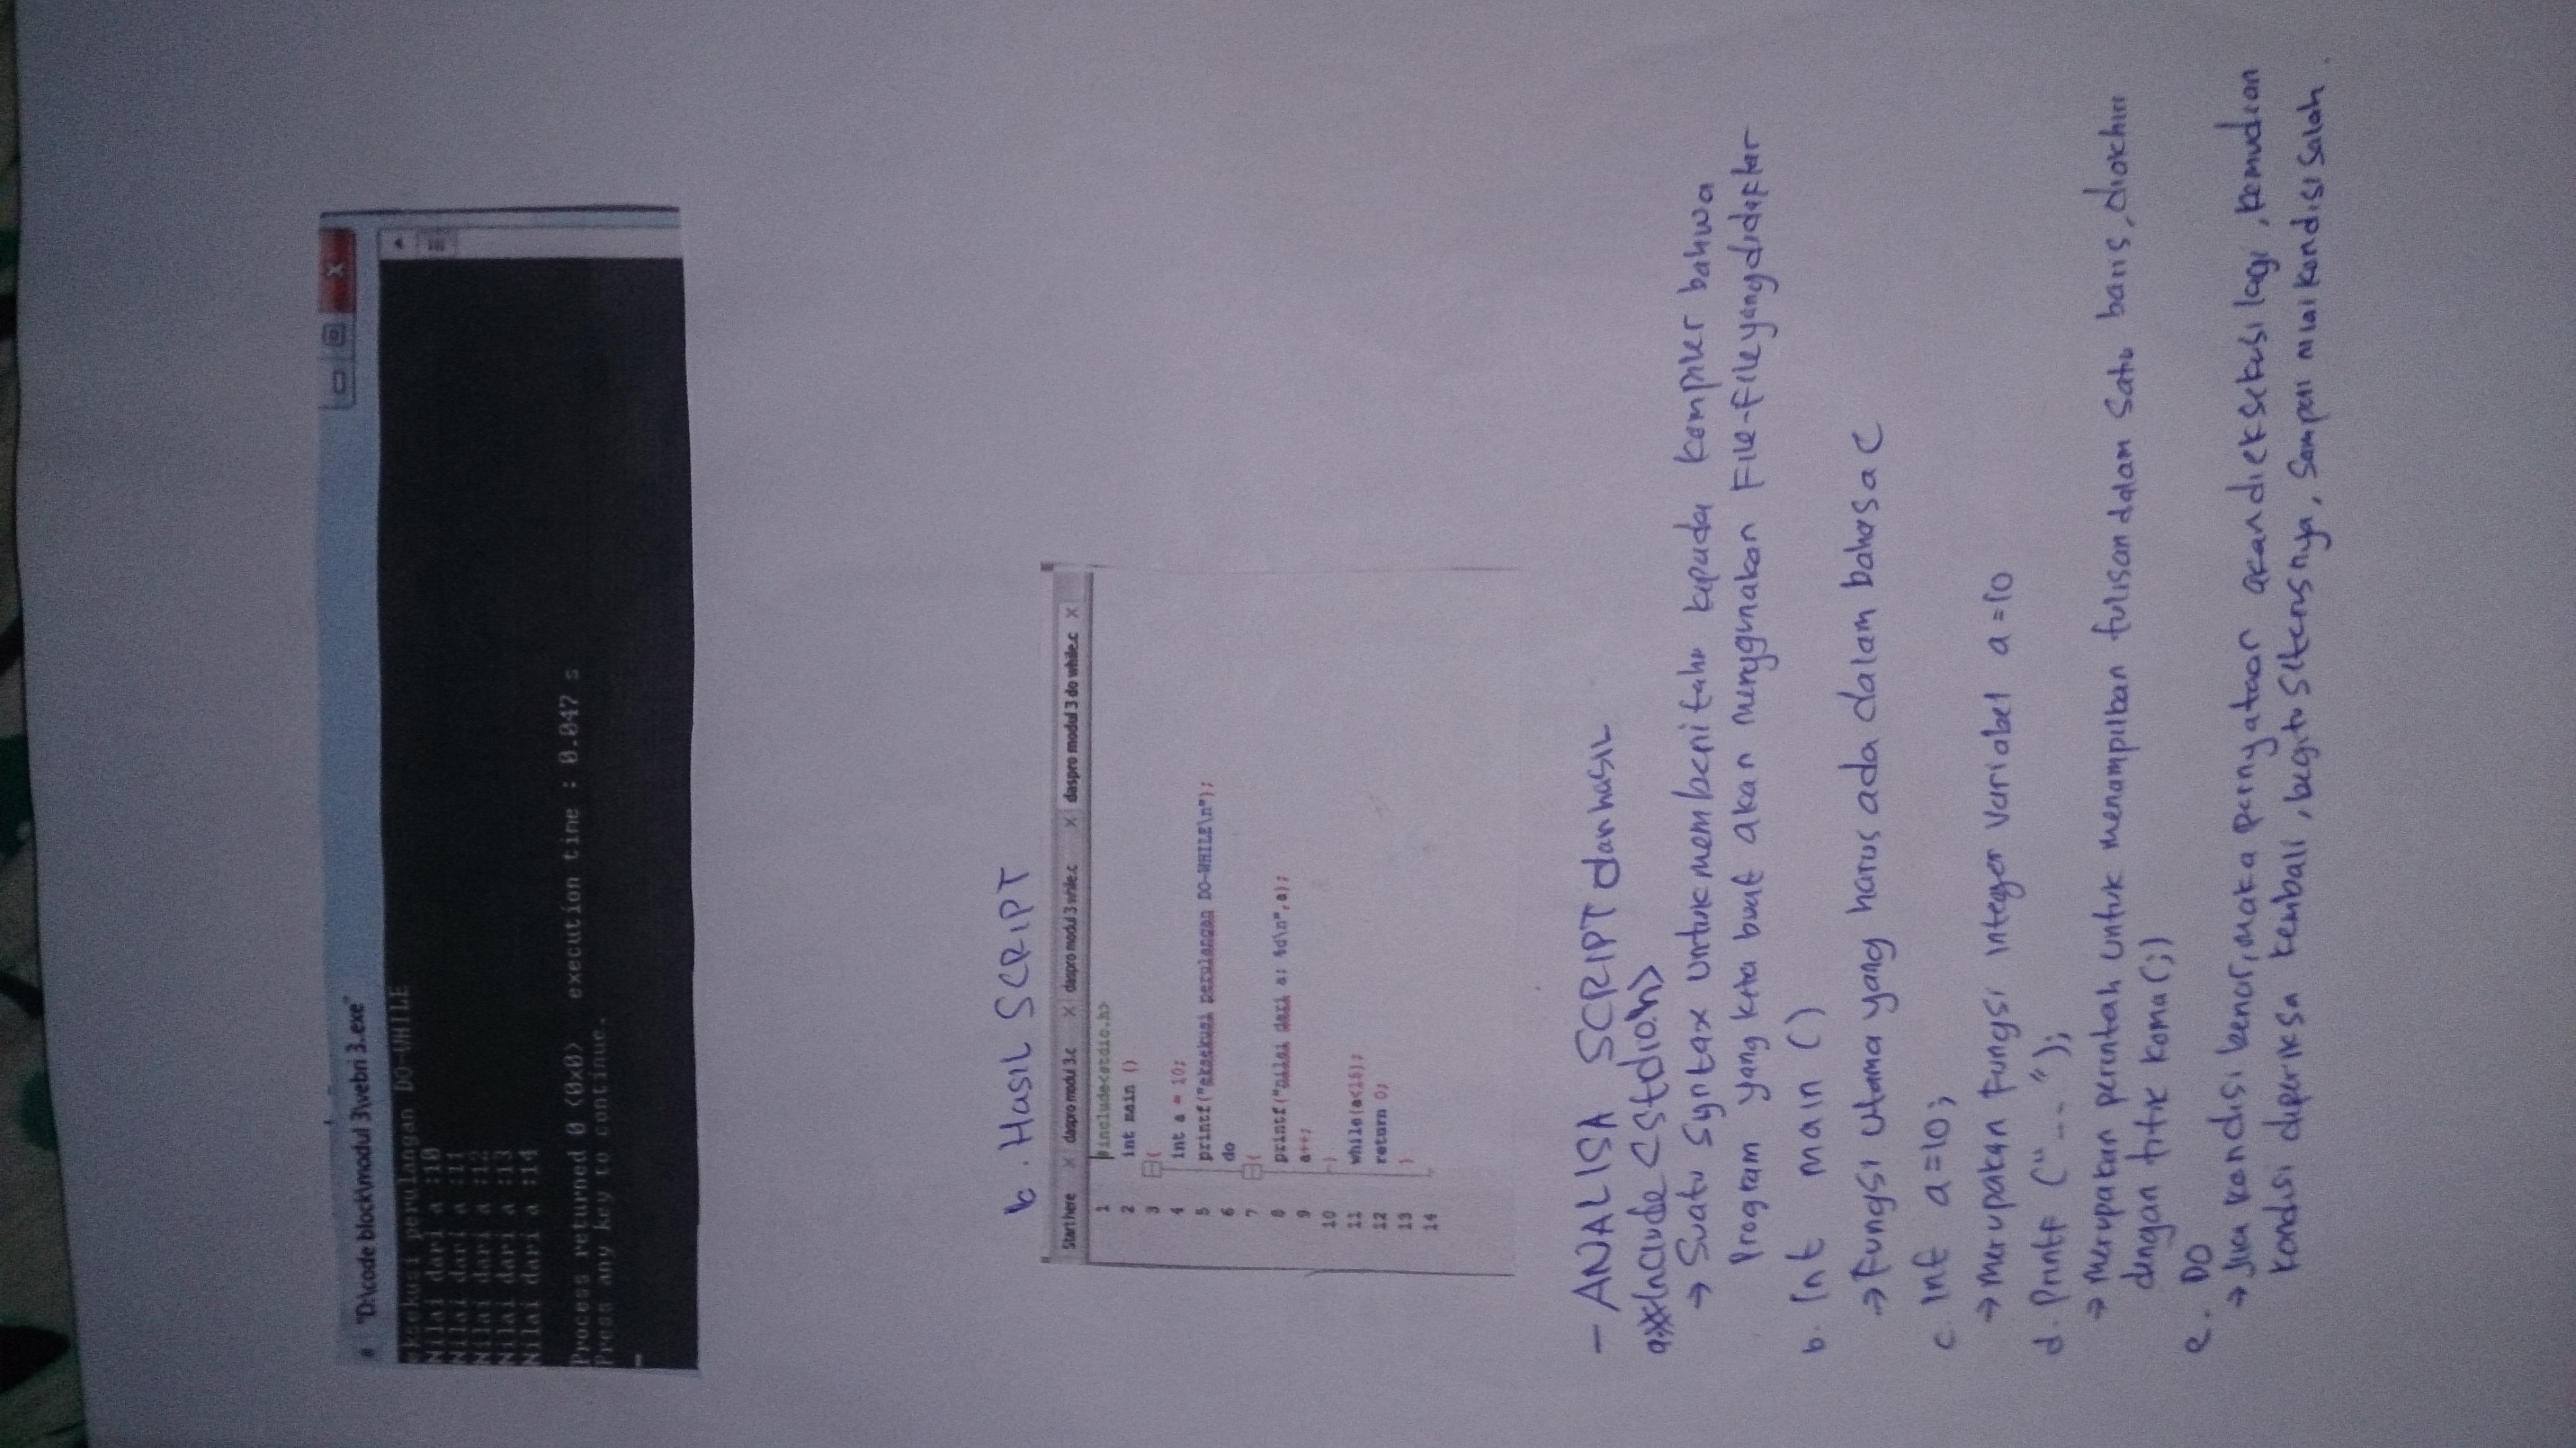 "D:\code block\modul 3\vebri 3..exe"
eksekusi perulangan DO-WHILE
Nilai dari a :10
Nilai dari a :11
Nilai dari a :12
Nilai dari a :13
Nilai dari a :14
Process returned 0 (0x0) execution time : 0.047 s
Press any key to continue.
b. HASIL SCRIPT
Start here daspro modul 3.c daspro modul 3 while.c daspro modul 3 do while.c
1 #include<stdio.h>
2 int main ()
3 {
4 int a = 10;
5 printf("eksekusi perulangan DO-WHILE\n");
6 do
7 {
8 printf("nilai dari a: %d\n",a);
9 a++;
10 }
11 while(a<15);
12 return 0;
13 }
14
- ANALISA SCRIPT dan hasil
a. #include <stdio.h>
→ Suatu Syntax untuk memberitahu kepada kompiler bahwa
Program yang kita buat akan menggunakan File-File yang didaftar
b. Int main ()
→ Fungsi Utama yang harus ada dalam bahasa C
c. Int a=10;
→ merupakan Fungsi Integer Variabel a=10
d. Printf ("...");
→ Merupakan perintah untuk menampilkan tulisan dalam satu baris, diakhiri
dengan titik koma (;)
e. DO
→ Jika kondisi benar, maka pernyataan akan dieksekusi lagi, kemudian
kondisi diperiksa kembali, begitu seterusnya, sampai nilai kondisi salah.